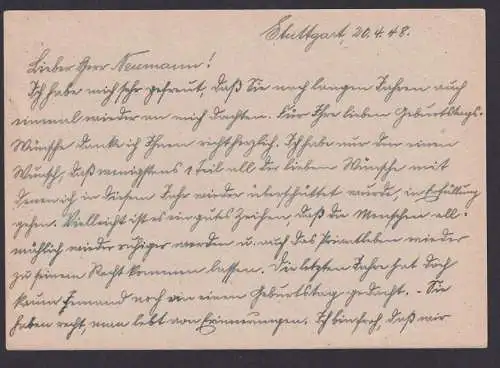 Stuttgart, 20.4.48.
Lieber Herr Neumann!
Ich habe mich sehr gefreut, daß Sie nach langen Jahren auch
einmal wieder an mich dachten. Für Ihre lieben Geburtstags-
Wünsche danke ich Ihnen recht herzlich. Ich habe nur den einen
Wunsch, daß wenigstens 1 Teil all der lieben Wünsche mit
denen ich in diesem Jahr wieder überschüttet wurde, in Erfüllung
gehen. Vielleicht ist es ein gutes Zeichen daß die Menschen all-
mählich wieder ruhiger werden u. auch das Privatleben wieder
zu seinem Recht kommen lassen. Die letzten Jahre hat doch
kaum Jemand noch an einen Geburtstag gedacht. – Sie
haben recht, man lebt von Erinnerungen. Ich bin froh, daß wir